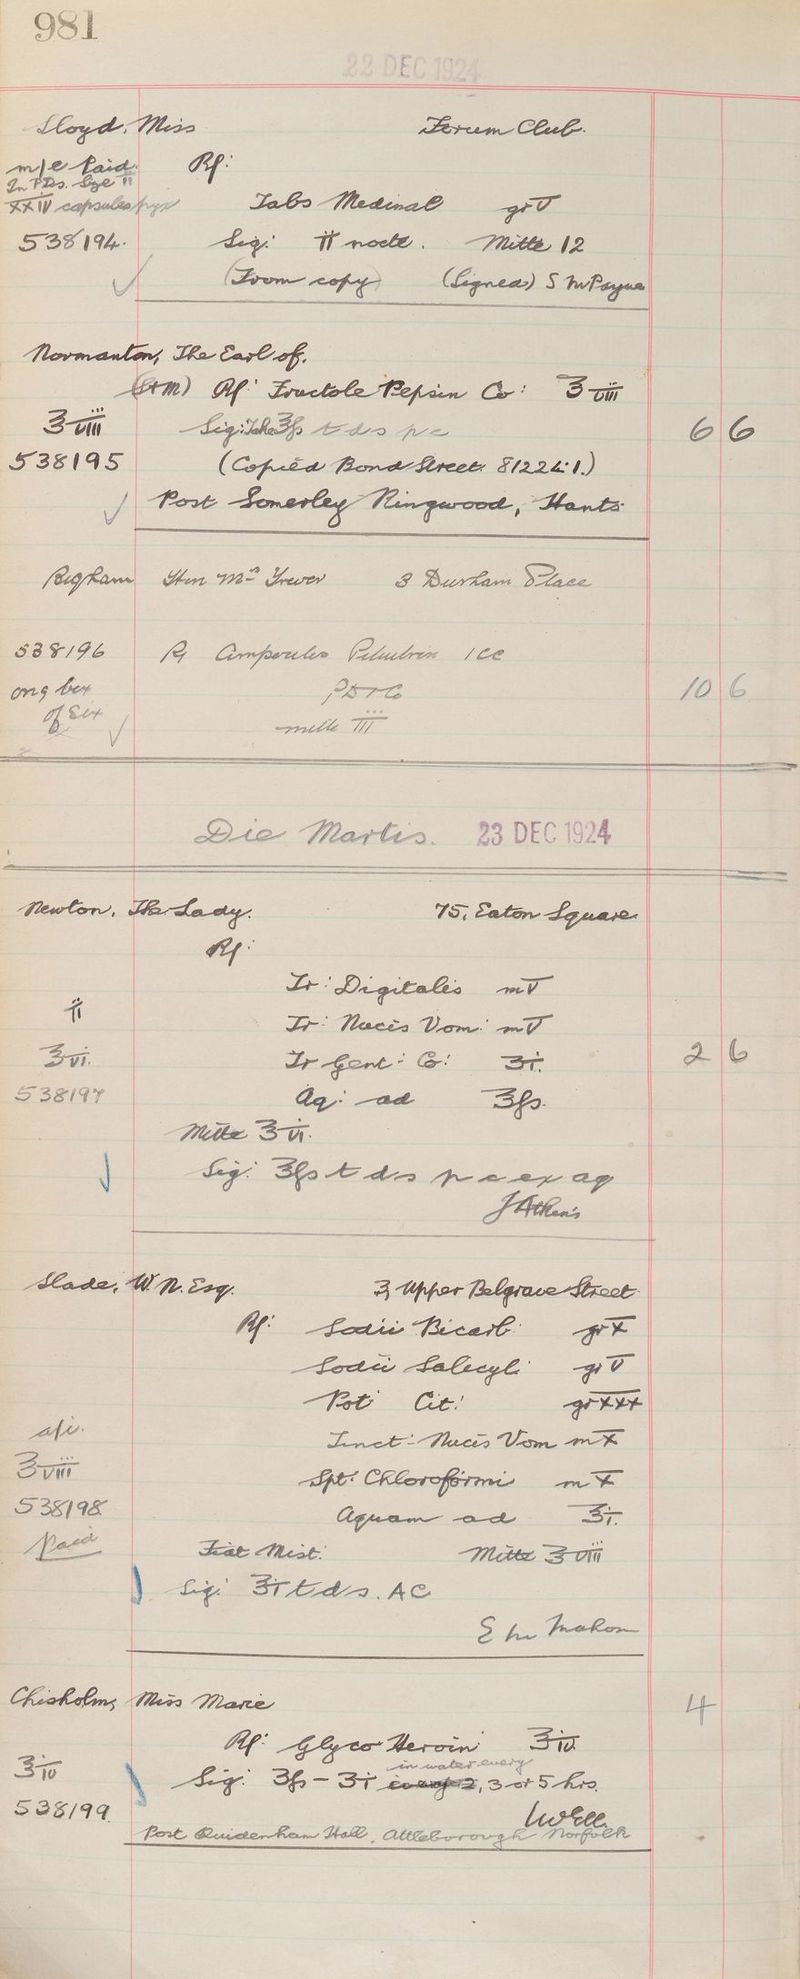 981
22 DEC 1924
Lloyd, Miss Forum Club.
m/c Paid. Rx:
In P.Ds. Size II
XXIV capsules Tabs Medinal gr V
538194. Sig: II nocte. Mitte 12
(From copy) (Signed) S M Payne
Normanton, The Earl of.
Rx: Fructole Pepsin Co: ℥ VIII
℥ VIII Sig: Take ʒfs t d s p c 6 6
538195 (Copied Bond Street. 81224.1.)
Post Somerley Ringwood, Hants.
Bigham Hon Mrs Trevor 3 Durham Place
538196 Rx Ampoules Pituitrin 1 cc
orig box P D & Co 10 6
of Six mitte III
Die Martis. 23 DEC 1924
Newton, The Lady. 75, Eaton Square
Rx:
Tr: Digitalis m V
II Tr: Nucis Vom: m V
℥ VI. Tr Gent: Co: ʒ I. 2 6
538197 Aq: ad ℥fs.
Mitte ℥ VI.
Sig: ℥fs t d s p c ex aq
J Atkens
Slade, W. N. Esq. 3, Upper Belgrave Street
Rx: Sodii Bicarb: gr X
Sodii Salicyl: gr V
Pot: Cit: gr XXX
Tinct: Nucis Vom m X
℥ VIII Spt: Chloroformi m X
538198 Aquam ad ℥ I.
Paid Fiat Mist: Mitte ℥ VIII
Sig: ℥ I t d s. A C
E M Mahon
Chisholm, Miss Marie 4
Rx: Glyco Heroin ℥ IV
in water every
℥ IV Sig: ʒfs – ʒ I every 2, 3 or 5 hrs.
538199.
Post Quidenham Hall, Attleborough Norfolk